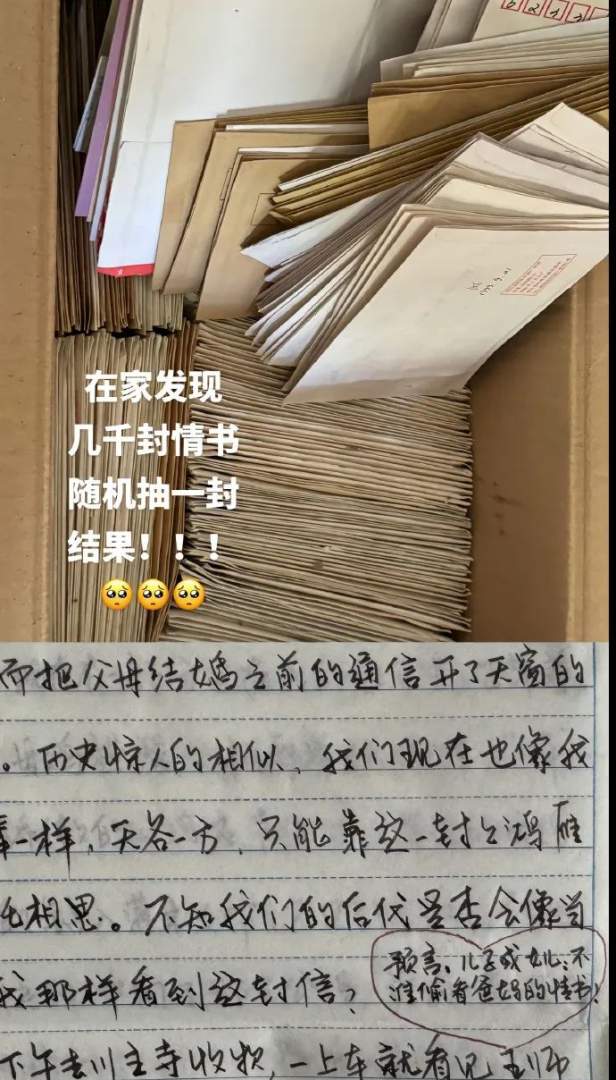 在家发现
几千封情书
随机抽一封
结果！！！
🥺🥺🥺
而把父母结婚之前的通信开了天窗的
。历史惊人的相似，我们现在也像我
辈一样，天各一方，只能靠这一封封鸿雁
托相思。不知我们的后代是否会像当
我那样看到这封信？
预言、儿子或女儿：不
准偷看爸妈的情书！
下午去川主寺收款，一上车就看见王师